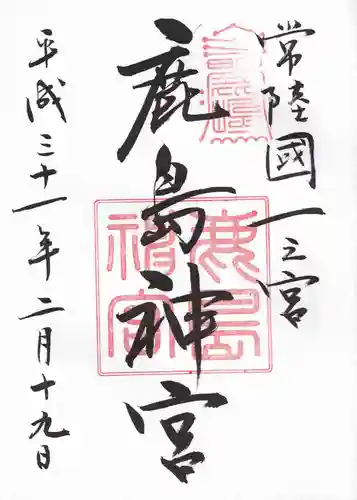 常陸國一之宮
鹿島神宮
鹿島神宮
平成三十一年二月十九日